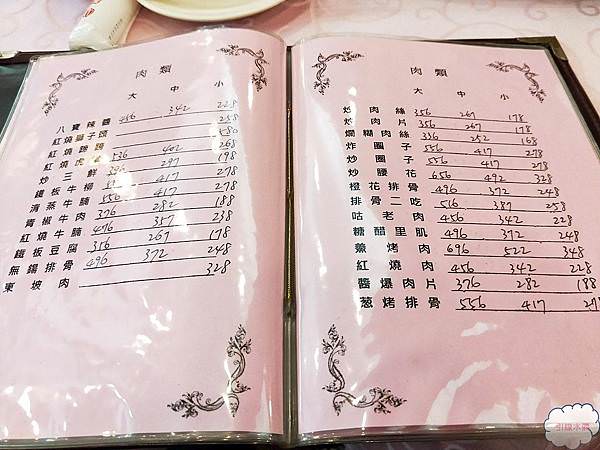 肉類
大 中 小
八寶辣醬 456 342 228
紅燒獅子頭 258
紅燒蹄膀 580
紅燒虎掌 536 402 268
炒三鮮 396 297 198
鐵板牛柳 556 417 278
清蒸牛腩 556 417 278
青椒牛肉 376 282 188
紅燒牛腩 476 357 238
鐵板豆腐 356 267 178
無錫排骨 496 372 248
東坡肉 328
肉類
大 中 小
炒肉絲 356 267 178
炒肉片 356 267 178
爛糊肉絲 336 252 168
炸圈子 556 417 278
炒圈子 556 417 278
炒腰花 656 492 328
橙花排骨 496 372 248
排骨二吃 516 387 258
咕老肉 456 342 228
糖醋里肌 496 372 248
烤肉 696 522 348
紅燒肉 456 342 228
醬爆肉片 376 282 188
葱烤排骨 556 417